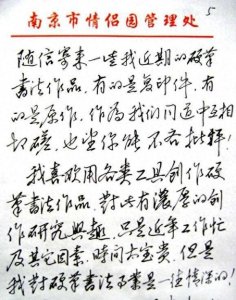 南京市情侣园管理处
5
随信寄来一些我近期的硬筆
書法作品，有的是复印件，有
的是原作，作为我们同道中互相
切磋，也望你能不吝批评！
我喜欢用各类工具创作硬
筆書法作品，對此有濃厚的创
作研究興趣，只是近年工作忙
及其它因素，時間太宝贵，但是
我對硬筆書法事業是一往情深的！